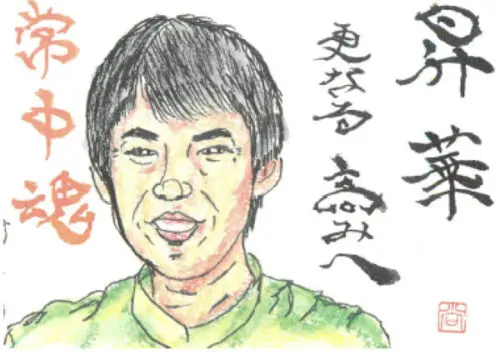 昇華
更なる
高みへ
常中魂